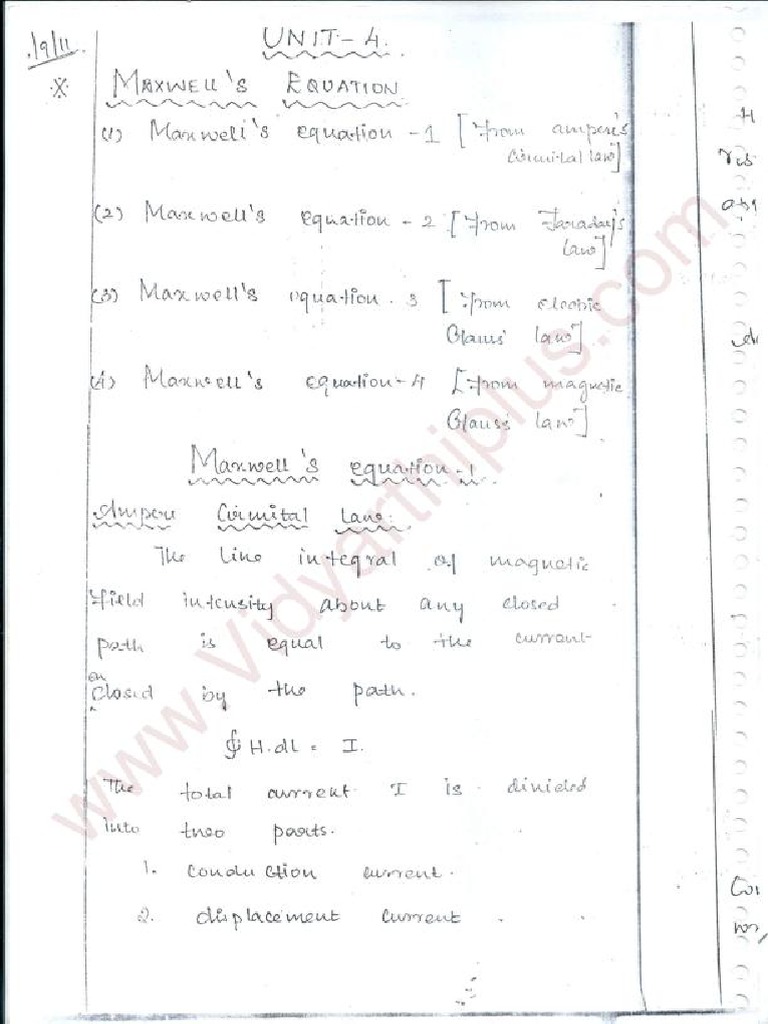 19/11
UNIT-4.
※ MAXWELL'S EQUATION
(1) Maxwell's equation - 1 [From ampere's
Circuital law]
(2) Maxwell's equation - 2 [From Faraday's
law]
(3) Maxwell's equation. 3 [From electric
Gauss law]
(4) Maxwell's equation-4 [From magnetic
Gauss law]
Maxwell's equation-1
Ampere Circuital Law.
The line integral of magnetic
field intensity about any closed
path is equal to the current
en
closed by the path.
∮ H.dl = I.
The total current I is divided
into two parts.
1. conduction current.
2. displacement current.
www.Vidyarthiplus.com